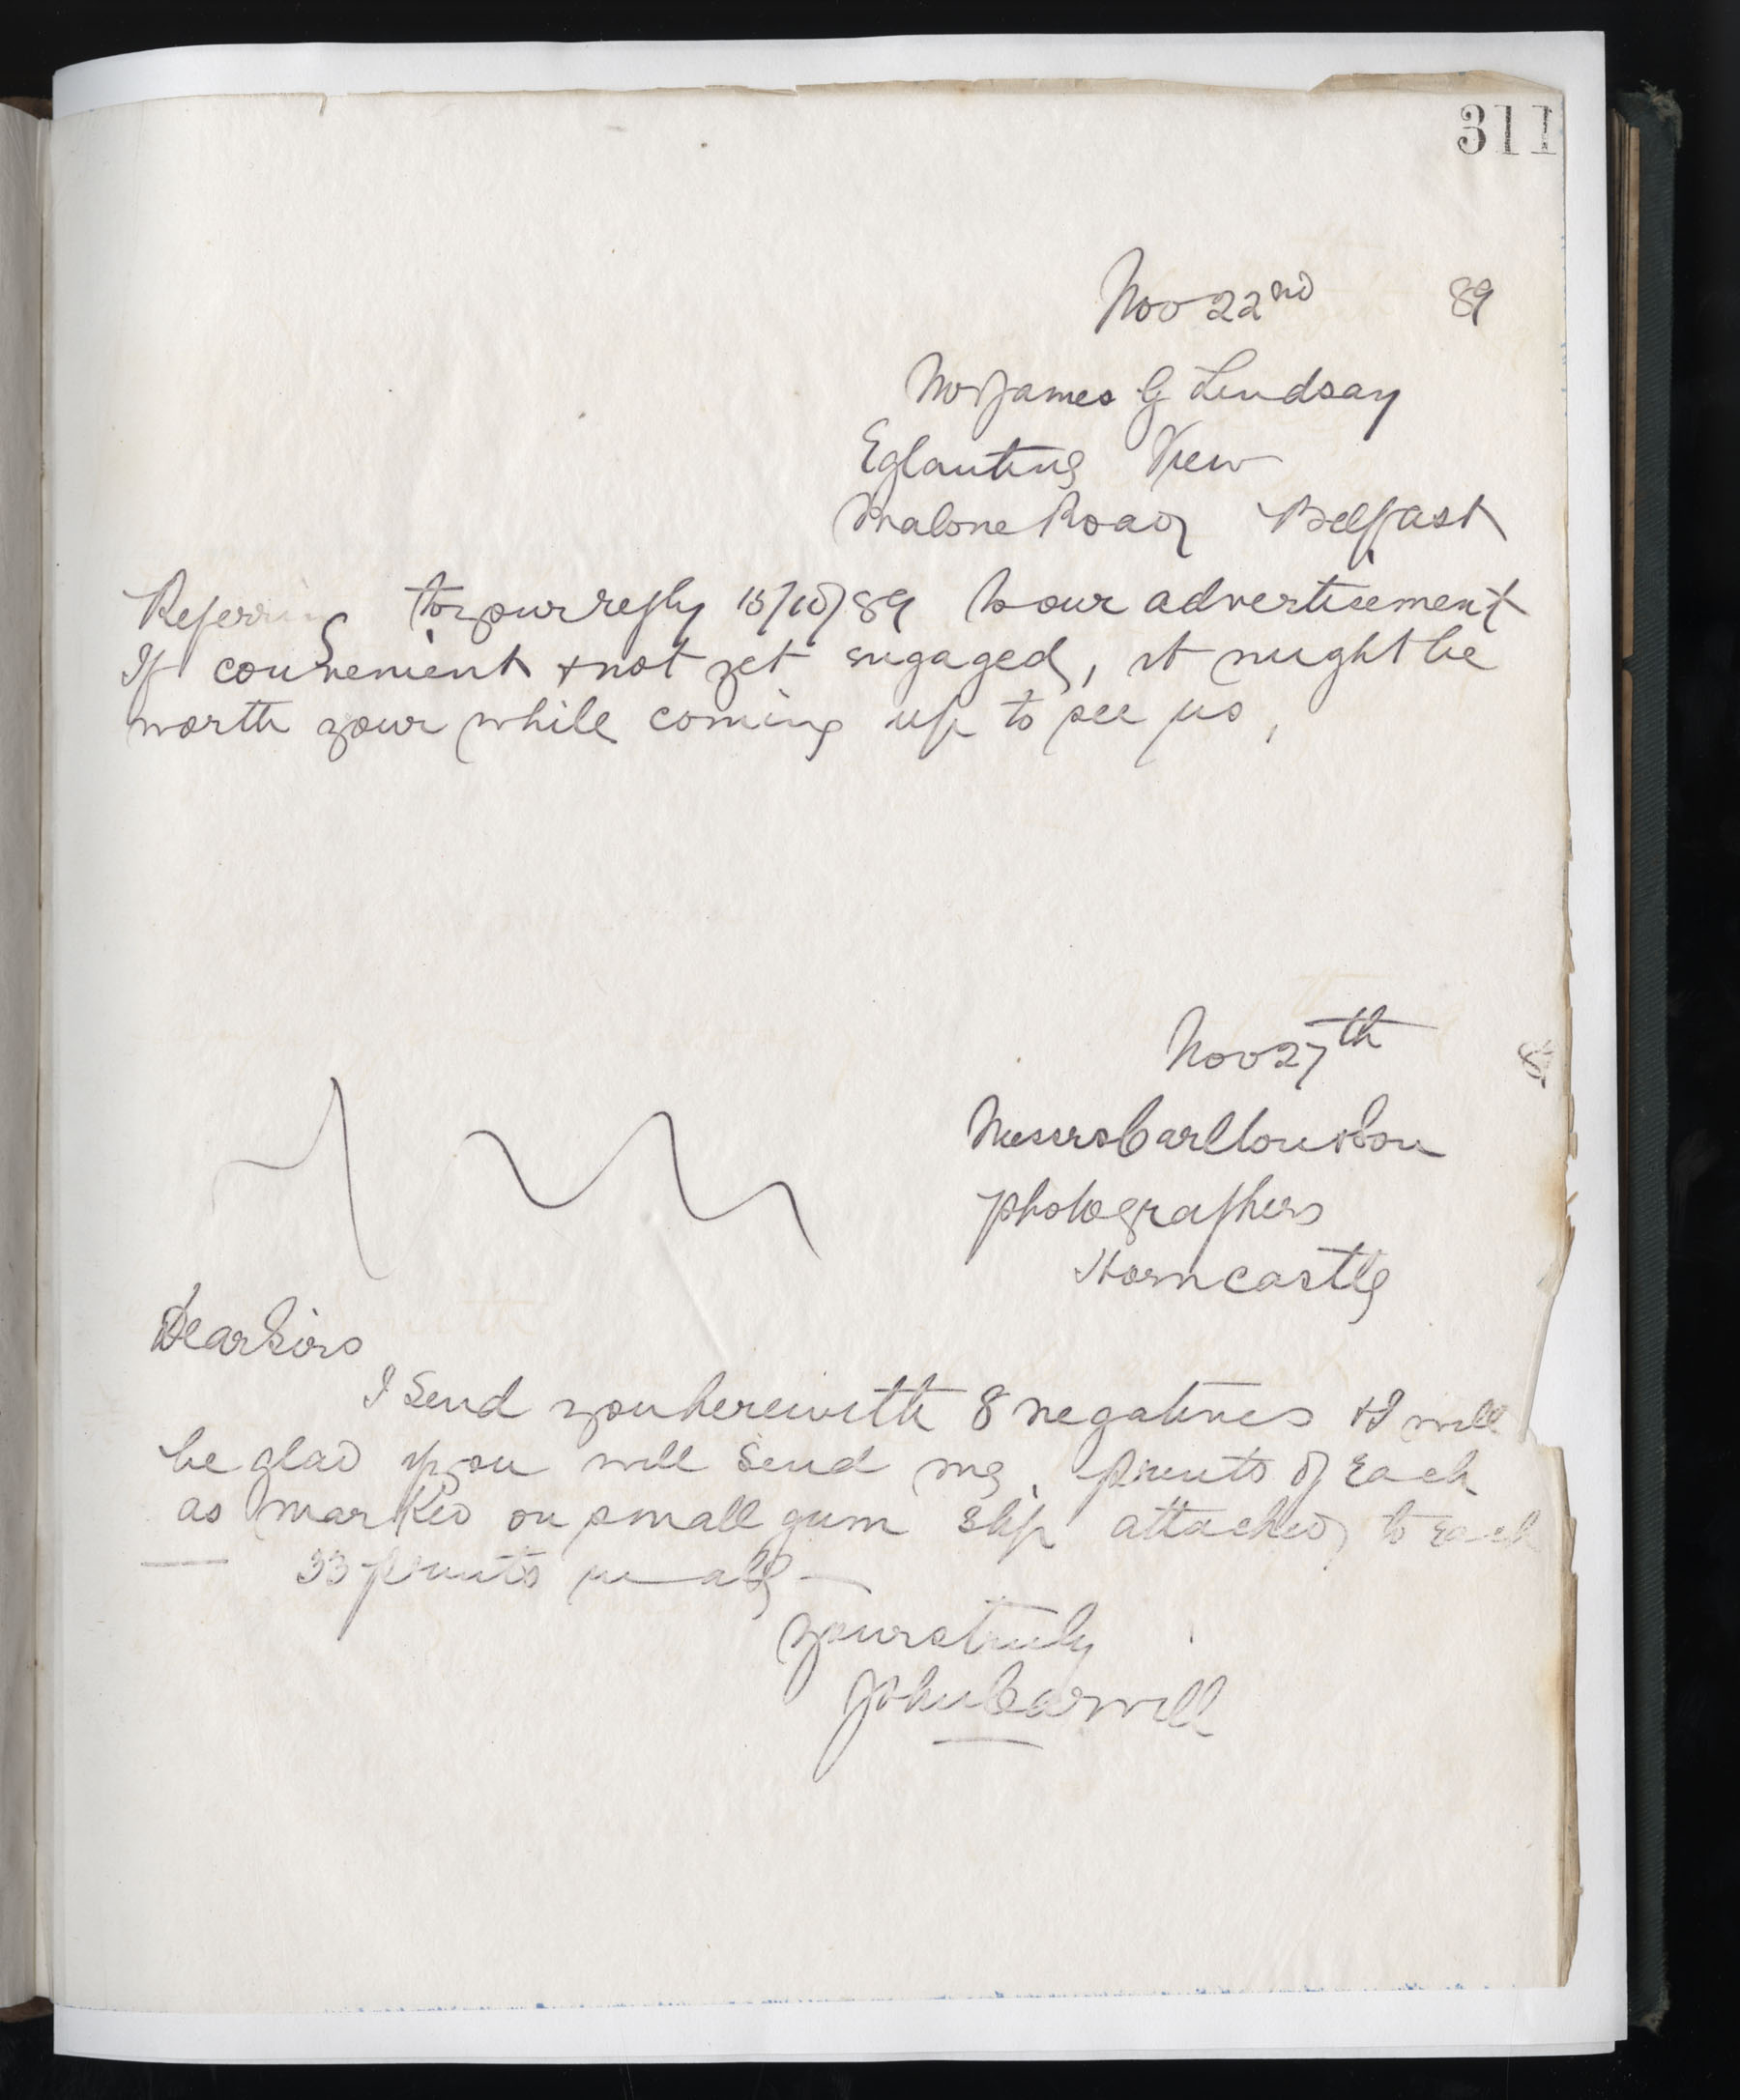 311
Nov 22nd 89
Mr James G Lindsay
Eglantine View
Malone Road Belfast
Referring to your reply 15/10/89 to our advertisement
If convenient & not yet engaged, it might be
worth your while coming up to see us,
Nov 27th 8
Messrs Carlton & Son
photographers
Horncastle
Dear Sirs
I send you herewith 8 negatives & I will
be glad if you will send me prints of each
as marked on small gum slip attached to each
— 33 prints in all —
Yours truly
John Carvill